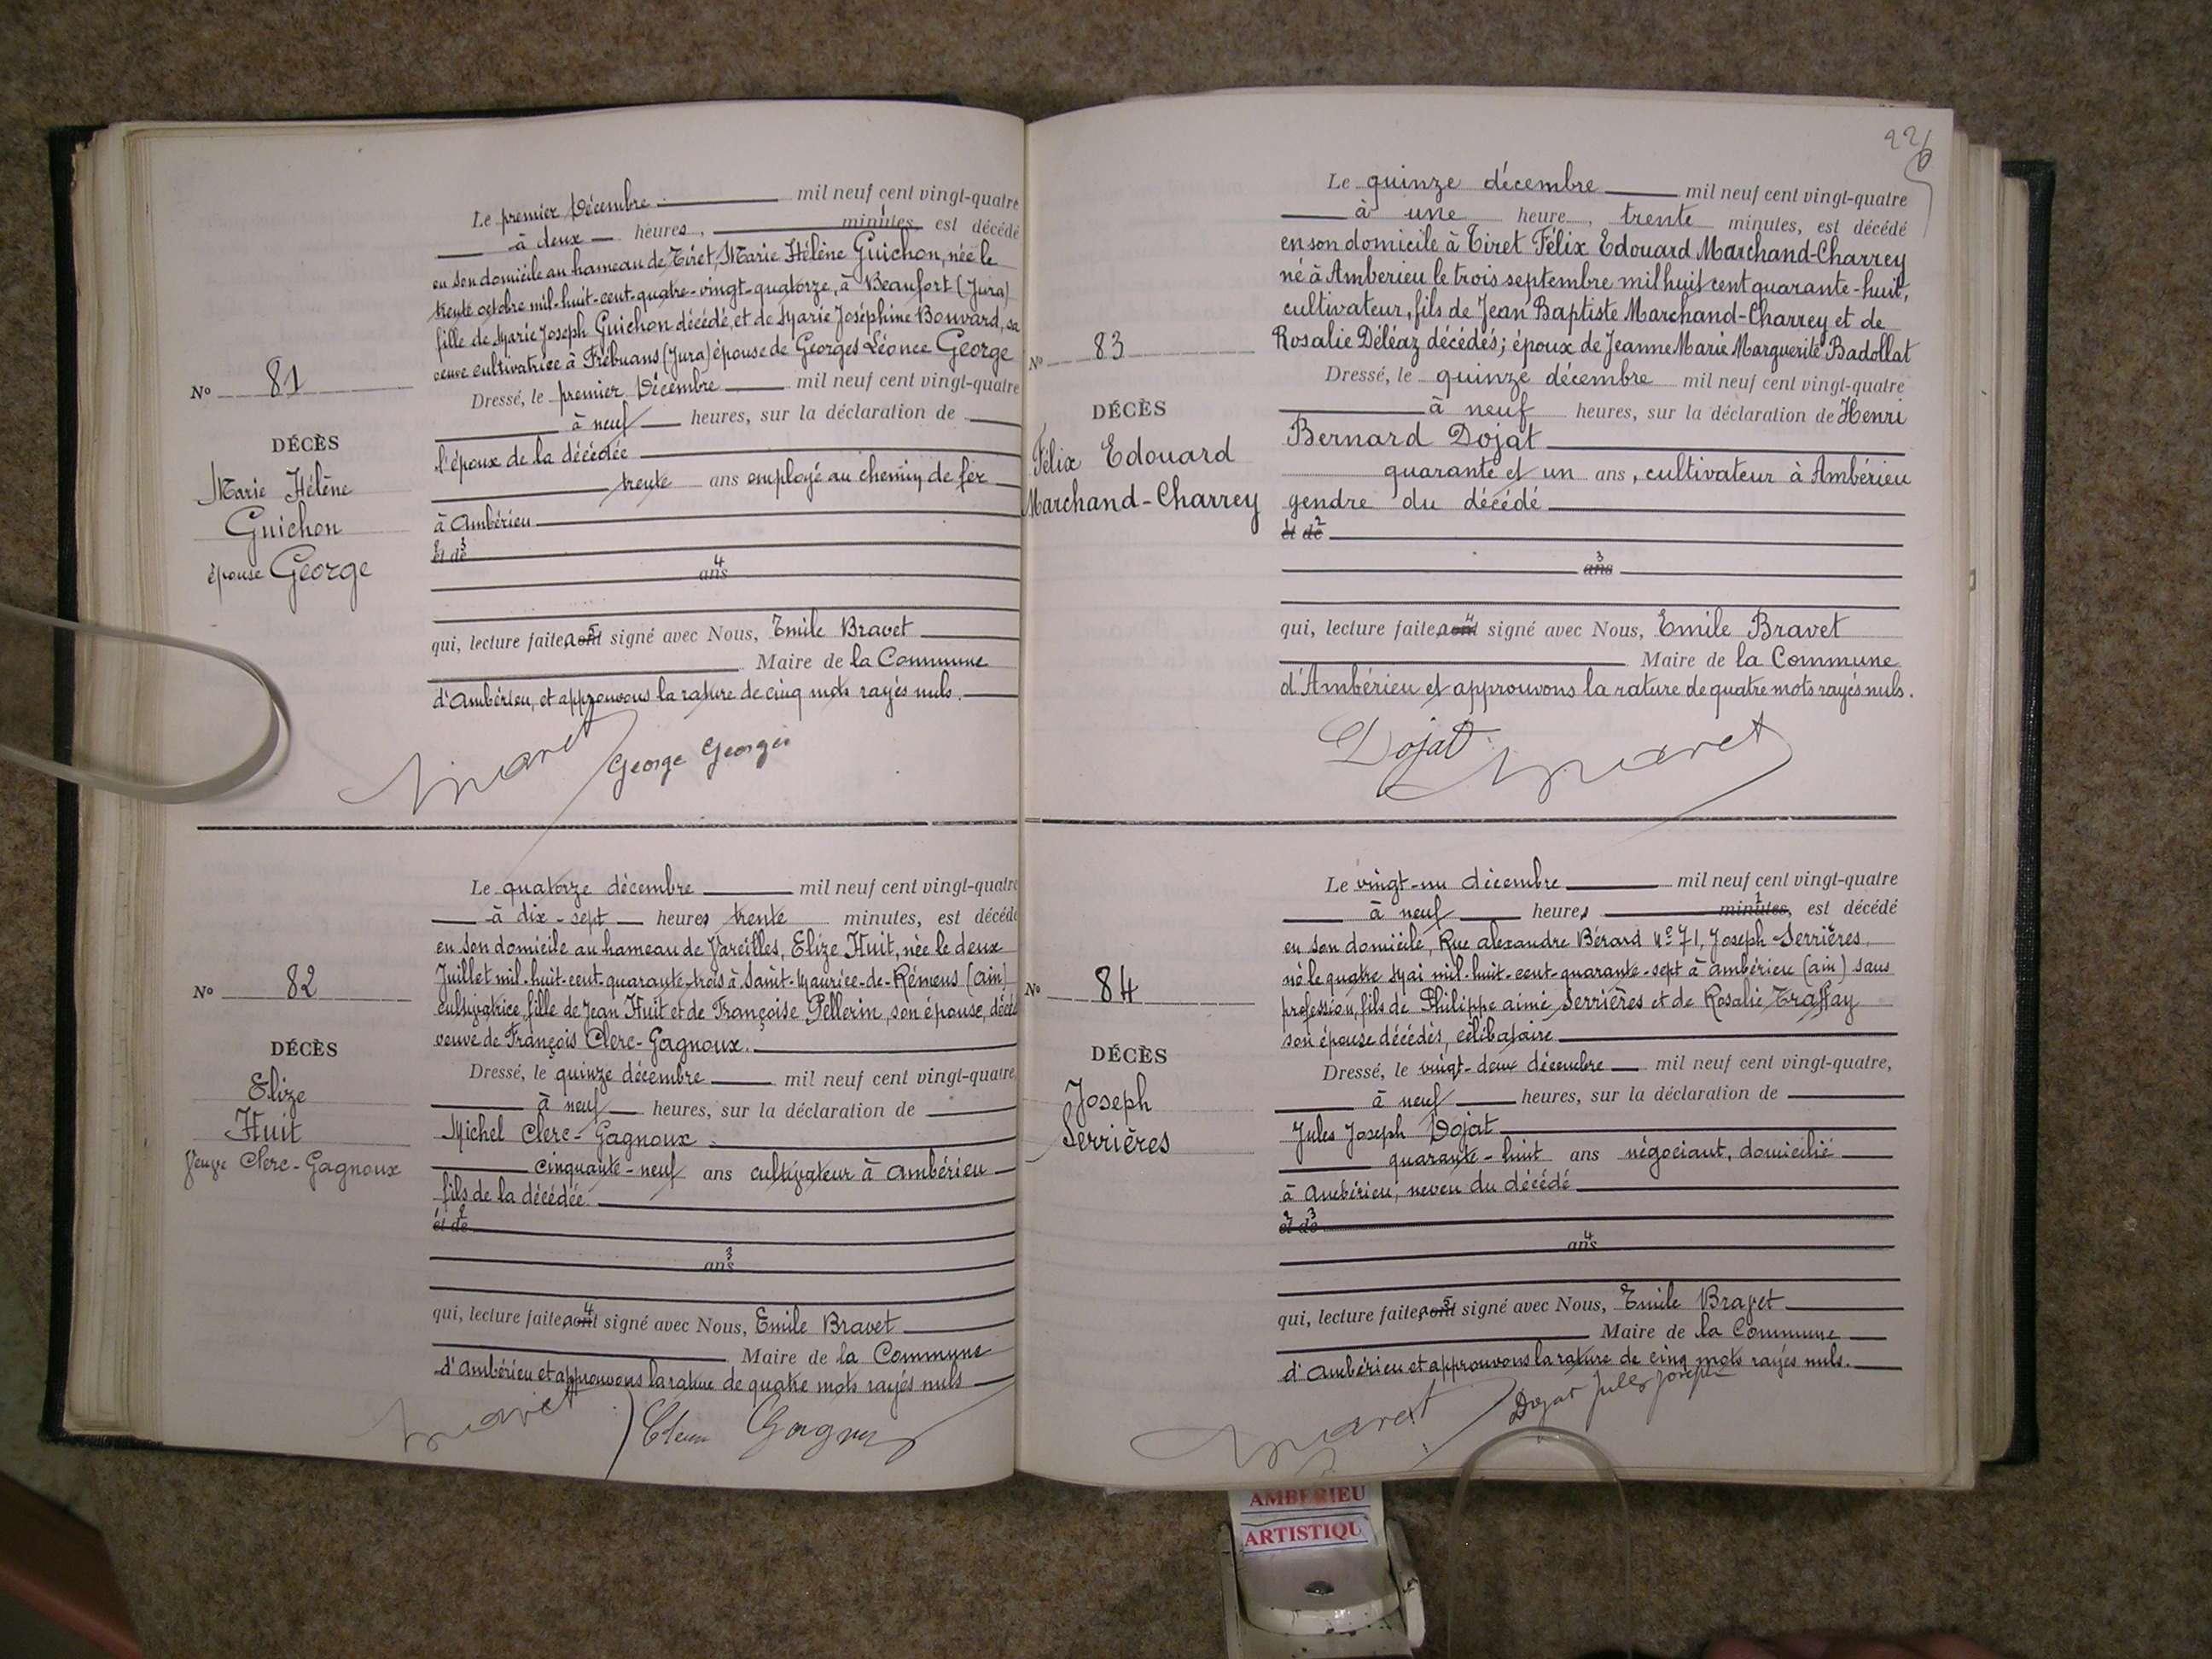 Le premier Décembre mil neuf cent vingt-quatre
à deux heures, minutes est décédé
en son domicile au hameau de Tiret, Marie Hélène Guichon, née le
trente octobre mil-huit-cent-quatre-vingt-quatorze, à Beaufort (Jura)
fille de Marie Joseph Guichon décédé, et de Marie Joséphine Bouvard, sa
veuve cultivatrice à Frébuans (Jura) épouse de Georges Léonce George
No 81
Dressé, le premier Décembre mil neuf cent vingt-quatre
à neuf heures, sur la déclaration de
DÉCÈS
Marie Hélène
Guichon
épouse George
l'époux de la décédée
trente ans employé au chemin de fer
à Ambérieu
et de 3
4
ans
qui, lecture faite, a ont 5 signé avec Nous, Emile Bravet
Maire de la Commune
d'Ambérieu, et approuvons la rature de cinq mots rayés nuls.
Bravet George Georges
Le quatorze décembre mil neuf cent vingt-quatre
à dix-sept heures trente minutes, est décédé
en son domicile au hameau de Vareilles, Elize Huit, née le deux
Juillet mil-huit-cent-quarante-trois à Saint-Maurice-de-Rémens (Ain)
cultivatrice, fille de Jean Huit et de Françoise Pellerin, son épouse, décéd
veuve de François Clerc-Gagnoux.
No 82
DÉCÈS
Elize
Huit
Veuve Clerc-Gagnoux
Dressé, le quinze décembre mil neuf cent vingt-quatre,
à neuf heures, sur la déclaration de
Michel Clerc-Gagnoux
cinquante-neuf ans cultivateur à Ambérieu
fils de la décédée.
1 2
et de
3
ans
qui, lecture faite, a ont 4 signé avec Nous, Emile Bravet
Maire de la Commune
d'Ambérieu et approuvons la rature de quatre mots rayés nuls
Bravet
226
Le quinze décembre mil neuf cent vingt-quatre
à une heure, trente minutes, est décédé
en son domicile à Tiret Félix Edouard Marchand-Charrey
né à Amberieu le trois septembre mil huit cent quarante-huit,
cultivateur, fils de Jean Baptiste Marchand-Charrey et de
Rosalie Déléaz décédés; époux de Jeanne Marie Marguerite Badollat
No 83
DÉCÈS
Félix Edouard
Marchand-Charrey
Dressé, le quinze décembre mil neuf cent vingt-quatre
à neuf heures, sur la déclaration de Henri
Bernard Dojat
quarante et un ans, cultivateur à Ambérieu
gendre du décédé
et de 2
3
ans
qui, lecture faite, a ont 4 signé avec Nous, Emile Bravet
Maire de la Commune
d'Ambérieu et approuvons la rature de quatre mots rayés nuls.
Dojat Bravet
Le vingt-un décembre mil neuf cent vingt-quatre
à neuf heures minutes, 1 est décédé
en son domicile, Rue Alexandre Bérard No 71, Joseph Serrières,
né le quatre Mai mil-huit-cent-quarante-sept à Ambérieu (Ain) sans
profession, fils de Philippe Aimé Serrières et de Rosalie Traffay
son épouse décédés, célibataire
No 84
DÉCÈS
Joseph
Serrières
Dressé, le vingt-deux décembre mil neuf cent vingt-quatre,
à neuf heures, sur la déclaration de
Jules Joseph Dojat
quarante-huit ans négociant, domicilié
à Ambérieu, neveu du décédé
2 3
et de
4
ans
qui, lecture faite, a ont 5 signé avec Nous, Emile Bravet
Maire de la Commune
d'Ambérieu et approuvons la rature de cinq mots rayés nuls.
Bravet Dojat Jules Joseph
AMBERIEU
ARTISTIQU